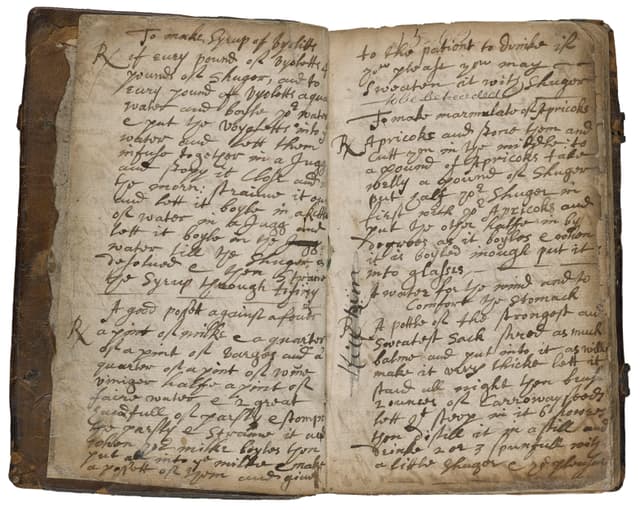 To make Syrup of Vyolitts
℞ of eury pound of Vyoletts 4
pounds of Shuger, and to
eury pound of Vyoletts a quart
water and boyle yͤ water
& put the Vyoletts into yͤ
water and lett them
infuse together in a Jugg
and stop it Close and
the morn: straine it out
and lett it boyle in a
of water in a Jugg and
lett it boyle in the Jugg
water till the Shuger is
desolued & then Straine
the Syrup through tifiny
A good posset against a feuer
℞ a pint of milke & a quarter
of a pint of and a
quarter of a pint of wine
viniger halfe a pint of
faire water & 2 great
handfull of parsly & stomp
the parsly & Straine it and
when yͤ milke boyles then
put all into yͤ milke & make
a possett of them and giue
to the patient to drinke if
you please you may
Sweaten it with Shuger
To make marmulato of Apricoks
℞ Apricoks and stone them and
Cutt ym in the midle to
a pound of Apricoks take
a pound of Shuger
put halfe yͤ Shuger in
first with yͤ Apricoks and
put the other halfe in by
degrees as it boyles & when
it is boyled enough put it
into glasses
A water for the wind and to
Comfort the Stomack
℞ A pottle of the strongest and
Sweatest Sack shred as much
balme and put into it as will
make it very thicke lett it
stand all night then bruse
2 ounces of Carroway seeds
lett it steep in it 6 howres
then distill it in a still and
drinke 2 or 3 spunfull with
a little Shuger &